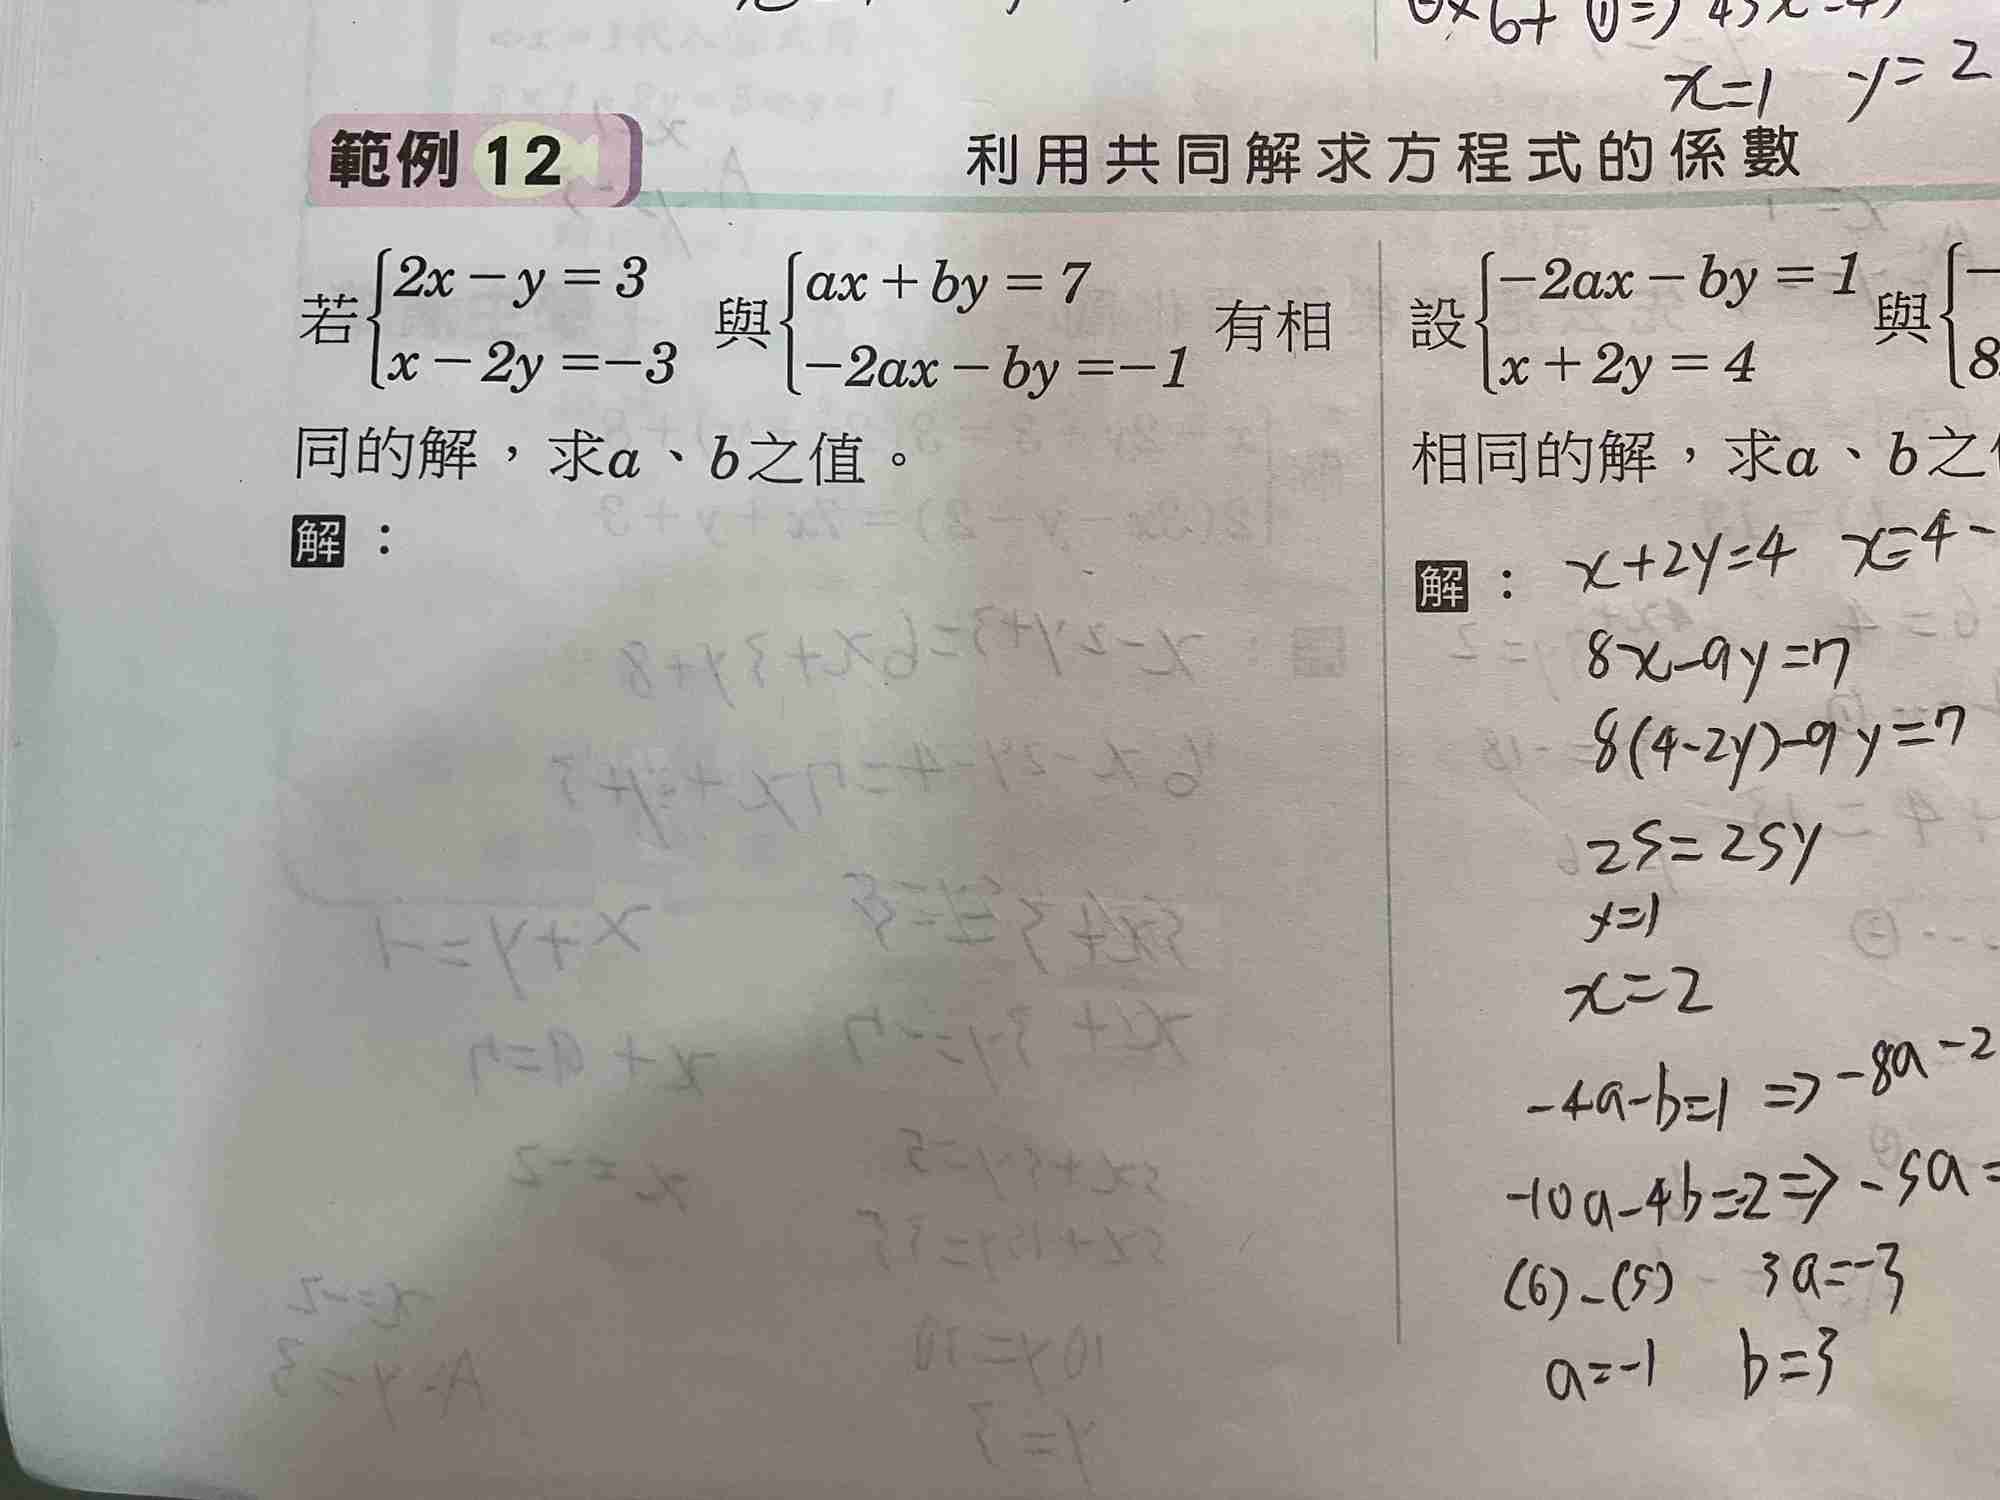 x=1 y=2
範例 12 利用共同解求方程式的係數
若{2x-y=3 x-2y=-3 與{ax+by=7 -2ax-by=-1 有相
同的解，求a、b之值。
解：
設{-2ax-by=1 x+2y=4 與{- 8
相同的解，求a、b之
解： x+2y=4 x=4-
8x-9y=7
8(4-2y)-9y=7
25=25y
y=1
x=2
-4a-b=1 => -8a-2
-10a-4b=-2 => -5a=
(6)-(5) 3a=-3
a=-1 b=3